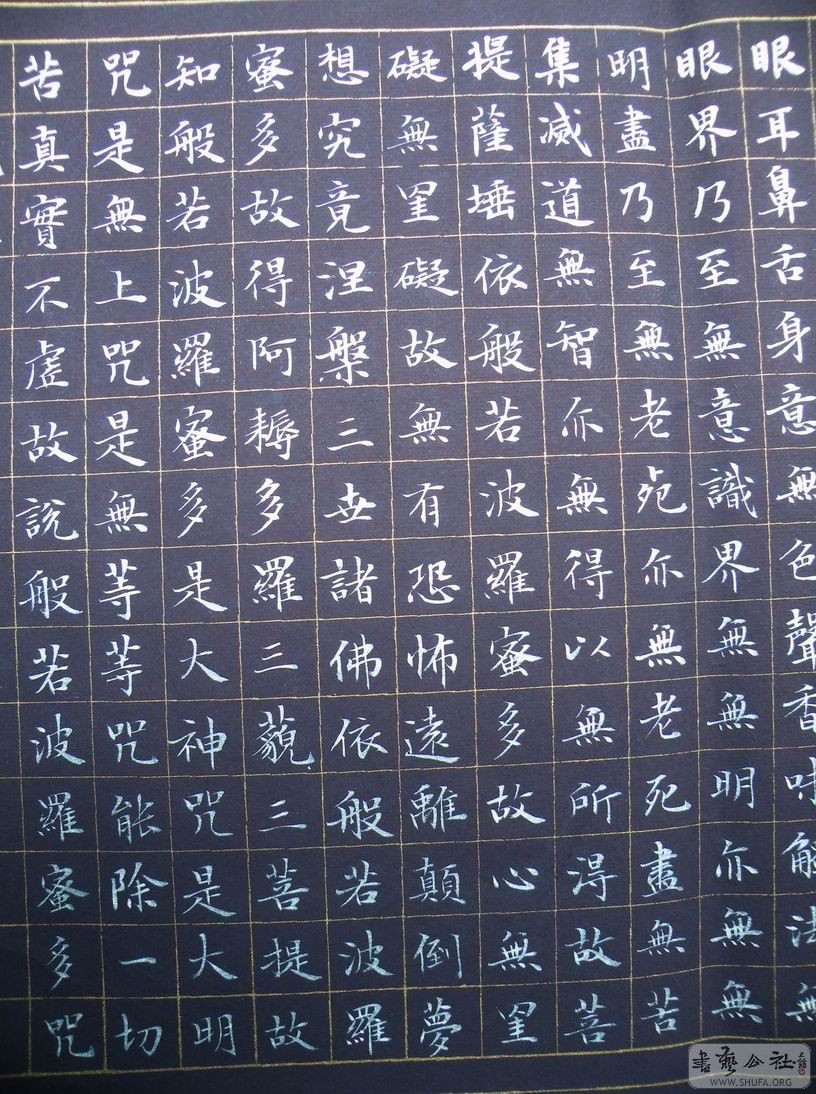 眼耳鼻舌身意無色聲香味觸法無
眼界乃至無意識界無無明亦無無
明盡乃至無老死亦無老死盡無苦
集滅道無智亦無得以無所得故菩
提薩埵依般若波羅蜜多故心無罣
礙無罣礙故無有恐怖遠離顛倒夢
想究竟涅槃三世諸佛依般若波羅
蜜多故得阿耨多羅三藐三菩提故
知般若波羅蜜多是大神咒是大明
咒是無上咒是無等等咒能除一切
苦真實不虛故說般若波羅蜜多咒
書藝公社
WWW.SHUFA.ORG